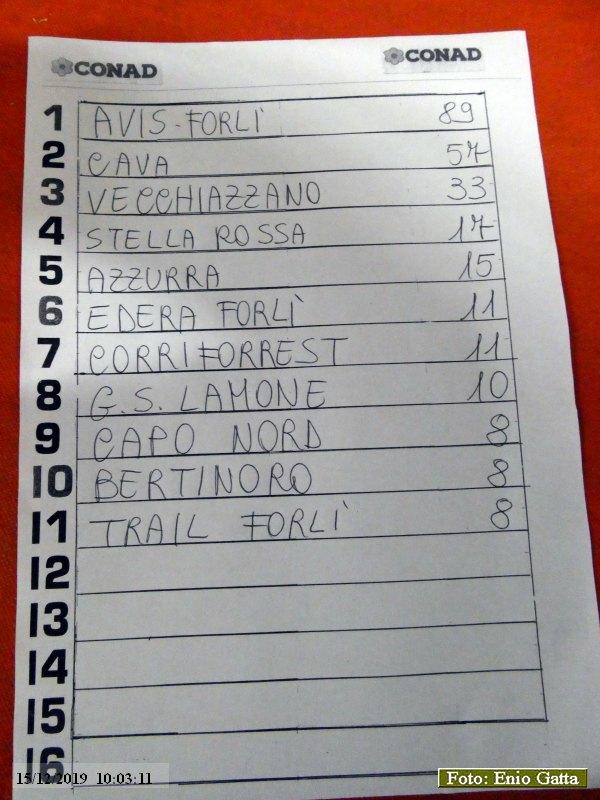 CONAD CONAD
1 AVIS-FORLÌ 89
2 CAVA 57
3 VECCHIAZZANO 33
4 STELLA ROSSA 17
5 AZZURRA 15
6 EDERA FORLÌ 11
7 CORRIFORREST 11
8 G.S. LAMONE 10
9 CAPO NORD 8
10 BERTINORO 8
11 TRAIL FORLÌ 8
12
13
14
15
16
15/12/2019 10:03:11 Foto: Enio Gatta